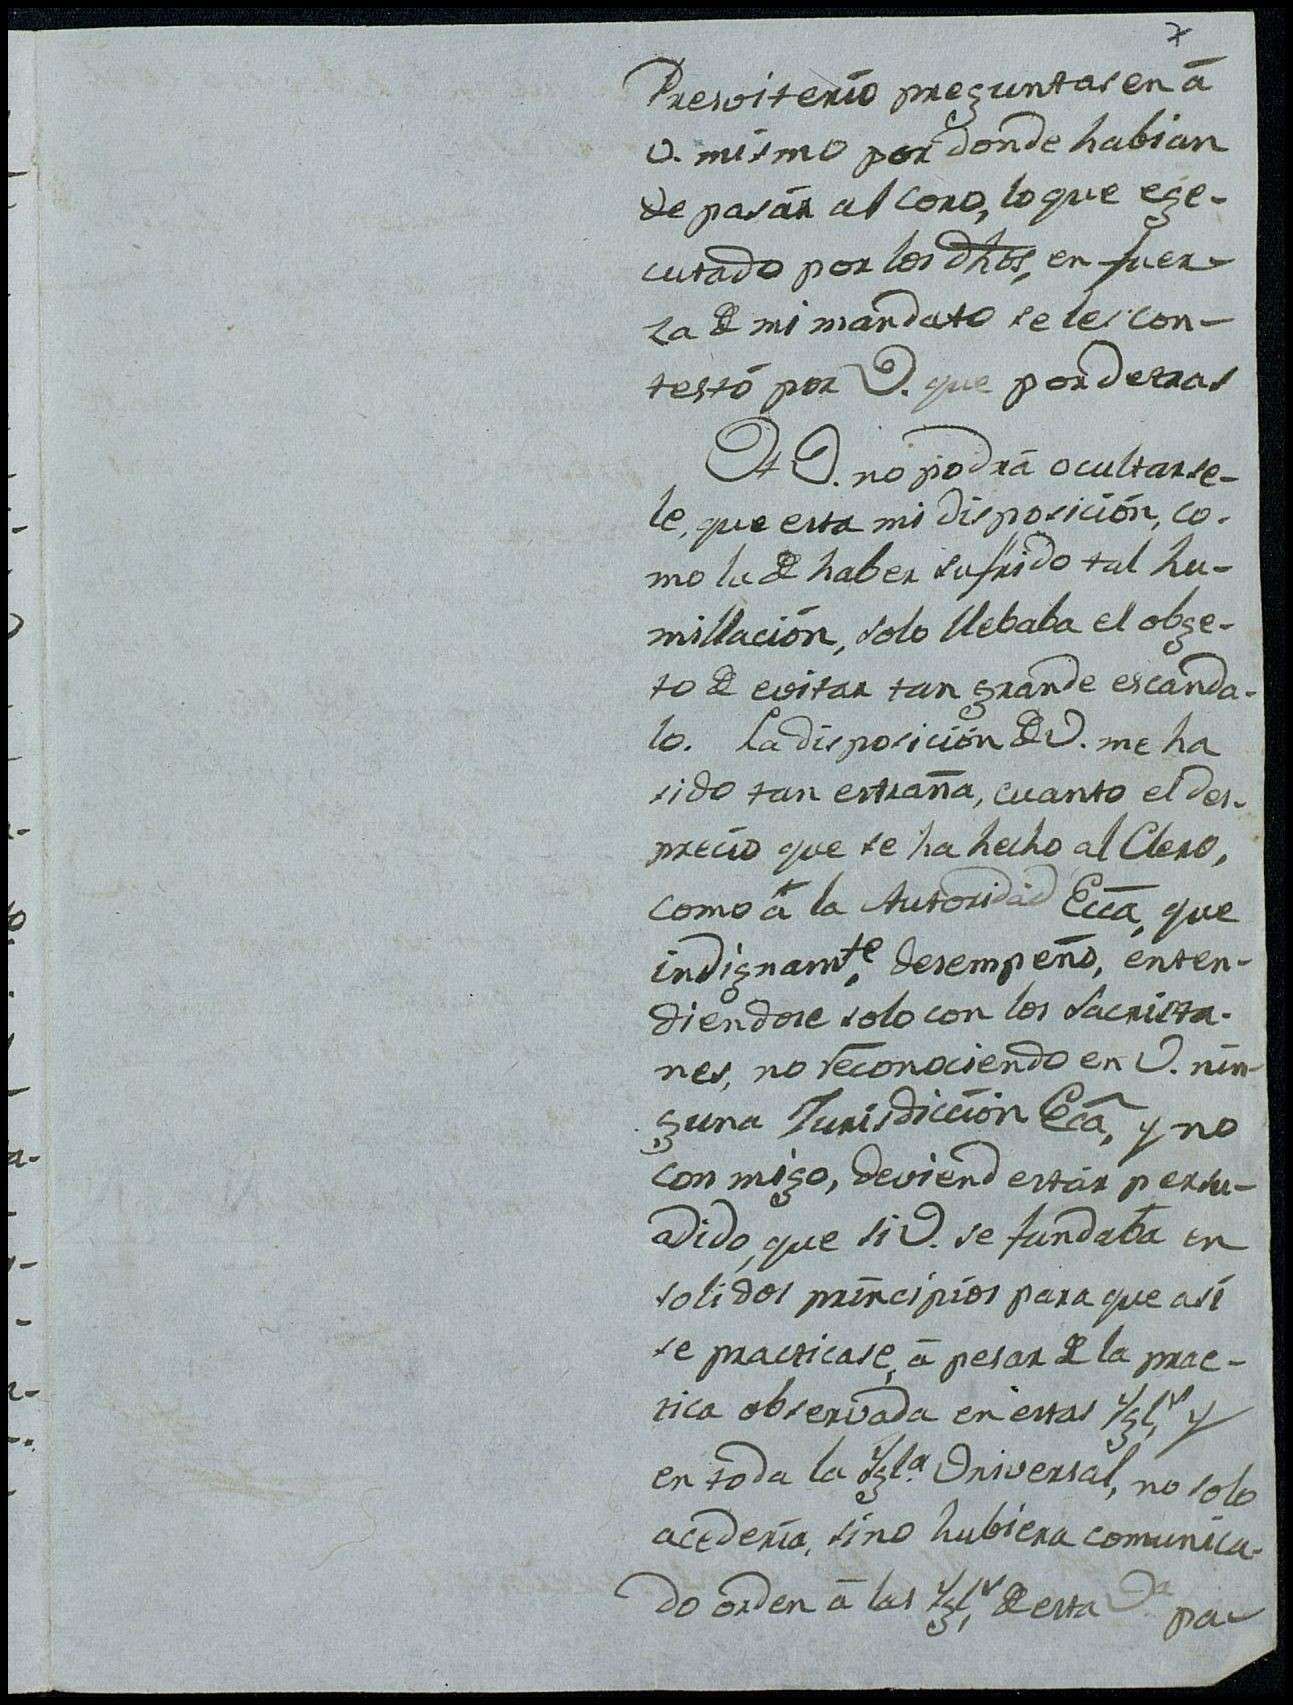 7
Presviterio preguntasen á
V. mismo por donde habian
de pasár al Coro, lo que ege-
cutado por los dhos, en fuer-
za de mi mandato se les con-
testó por V. que por detras
A V. no podrá ocultarse-
le, que esta mi disposición, co-
mo la de haber sufrido tal hu-
millación, solo llebaba el obge-
to de evitar tan grande escanda-
lo. La disposición de V. me ha
sido tan estraña, cuanto el des-
precio que se ha hecho al Clero,
como á la Autoridad Ecca, que
indignamte. desempeño, enten-
diendose solo con los Sacrista-
nes, no reconociendo en V. nin-
guna Jurisdicción Eca, y no
con migo, deviend estár persu-
adido, que si V. se fundaba en
solidos principios para que asi
se practicase, á pesar de la prac-
tica observada en estas Ygls, y
en toda la Ygla. Universal, no solo
acederia, sino hubiera comunica-
do orden á las Ygls, de esta Va pa-